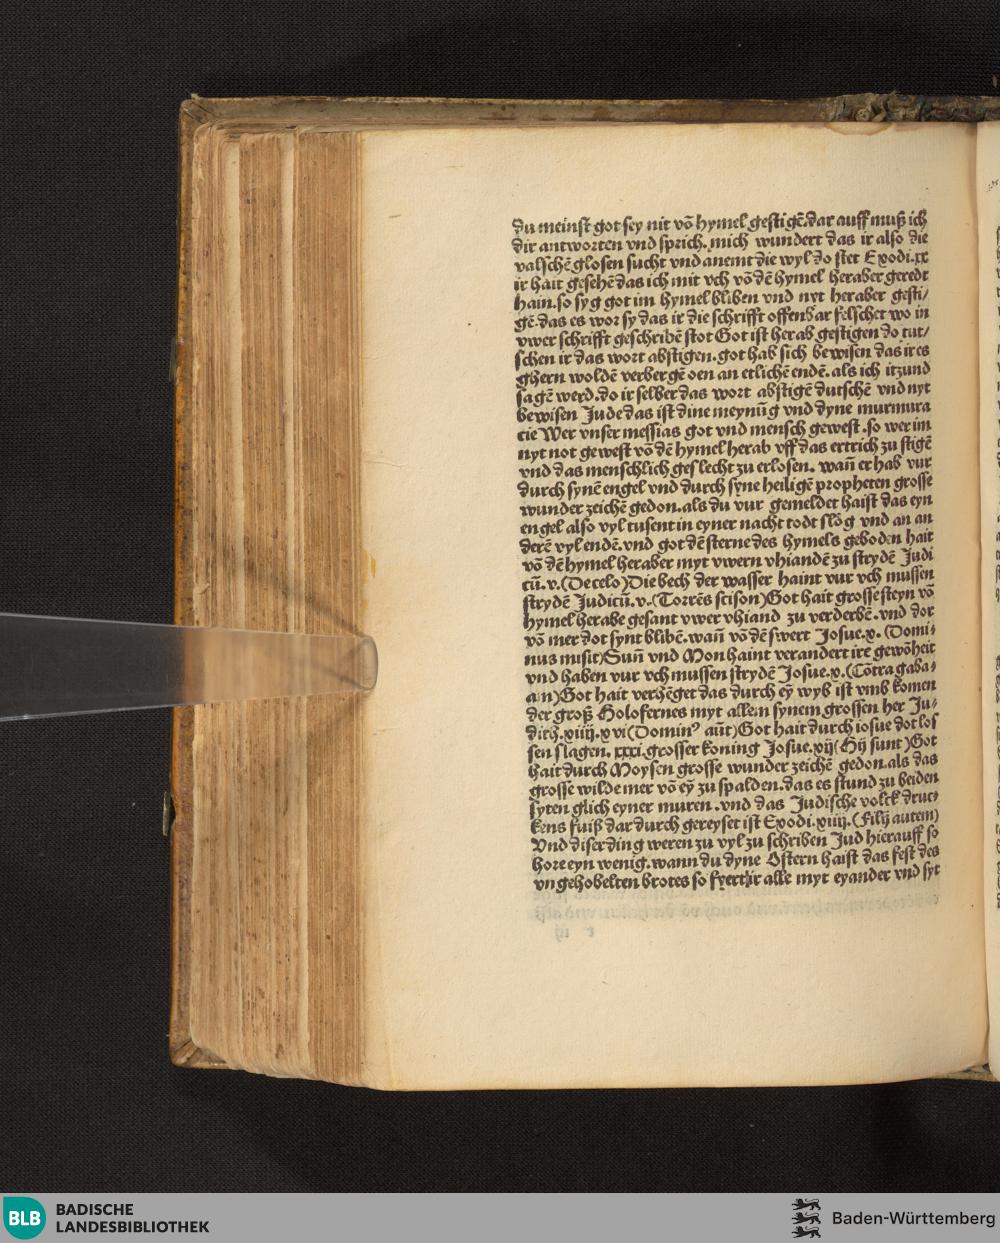 Du meinst got sey nit võ hymel gestigē.dar auff muß ich
dir antworten vnd sprich.mich wundert das ir also die
valschē glosen sucht vnd anemt die wyl do stet Exodi.xx
ir hait gesehē das ich mit vch võ dē hymel heraber geredt
hain.so syg got im hymel bliben vnd nyt heraber gesti/
gē.das es wor sy das ir die schrifft offenbar felschet wo in
vwer schrifft geschribē stot Got ist herab gestigen do tut/
schen ir das wort abstigen.got hab sich bewisen das ir es
ghern woldē verbergē oen an etlichē endē.als ich itzund
sagē werd.do ir selber das wort abstigē dutschē vnd nyt
bewisen Jude das ist dine meynūg vnd dyne murmura
cie Wer vnser messias got vnd mensch gewest.so wer im
nyt not gewest võ dē hymel herab vff das ertrich zu stigē
vnd das menschlich geslecht zu erlosen. wañ er hab vur
durch synē engel vnd durch syne heiligē propheten grosse
wunder zeichē gedon.als du vur gemeldet haist das eyn
engel also vyl tusent in eyner nacht todt slõg vnd an an
derē vyl endē.vnd got dē sterne des hymels geboden hait
võ dē hymel heraber myt vwern vhiandē zu strydē Judi
cū.v.(De celo)Die bech der wasser haint vur vch mussen
strydē Judicū.v.(Torrēs scison)Got hait grosse steyn võ
hymel herabe gesant vwer vhiand zu verderbē.vnd dor
võ mer dot synt blibē.wañ võ dē swert Josue.x. (Domi-
nus misit)Suñ vnd Mon haint verandert ire gewõheit
vnd haben vur vch mussen strydē Josue.x.(Cõtra gaba-
an)Got hait verhēget das durch eȳ wyb ist vmb komen
der groß Holofernes myt allem synem grossen her Ju-
dith.xiiij.xvi(Domin⁹ aūt)Got hait durch iosue dot los
sen slagen. xxxi.grosser koning Josue.xij(Hij sunt)Got
hait durch Moysen grosse wunder zeichē gedon.als das
grosse wilde mer võ eȳ zu spalden.das es stund zu beiden
syten glich eyner muren.vnd das Judische volck druc-
kens fuiß dar durch gereyset ist Exodi.xiiij.(Filij autem)
Vnd diser ding weren zu vyl zu schriben Jud hierauff so
hore eyn wenig.wann du dyne Ostern haist das fest des
vngehobelten brotes so fyert ir alle myt eyander vnd syt
BLB
BADISCHE
LANDESBIBLIOTHEK
Baden-Württemberg